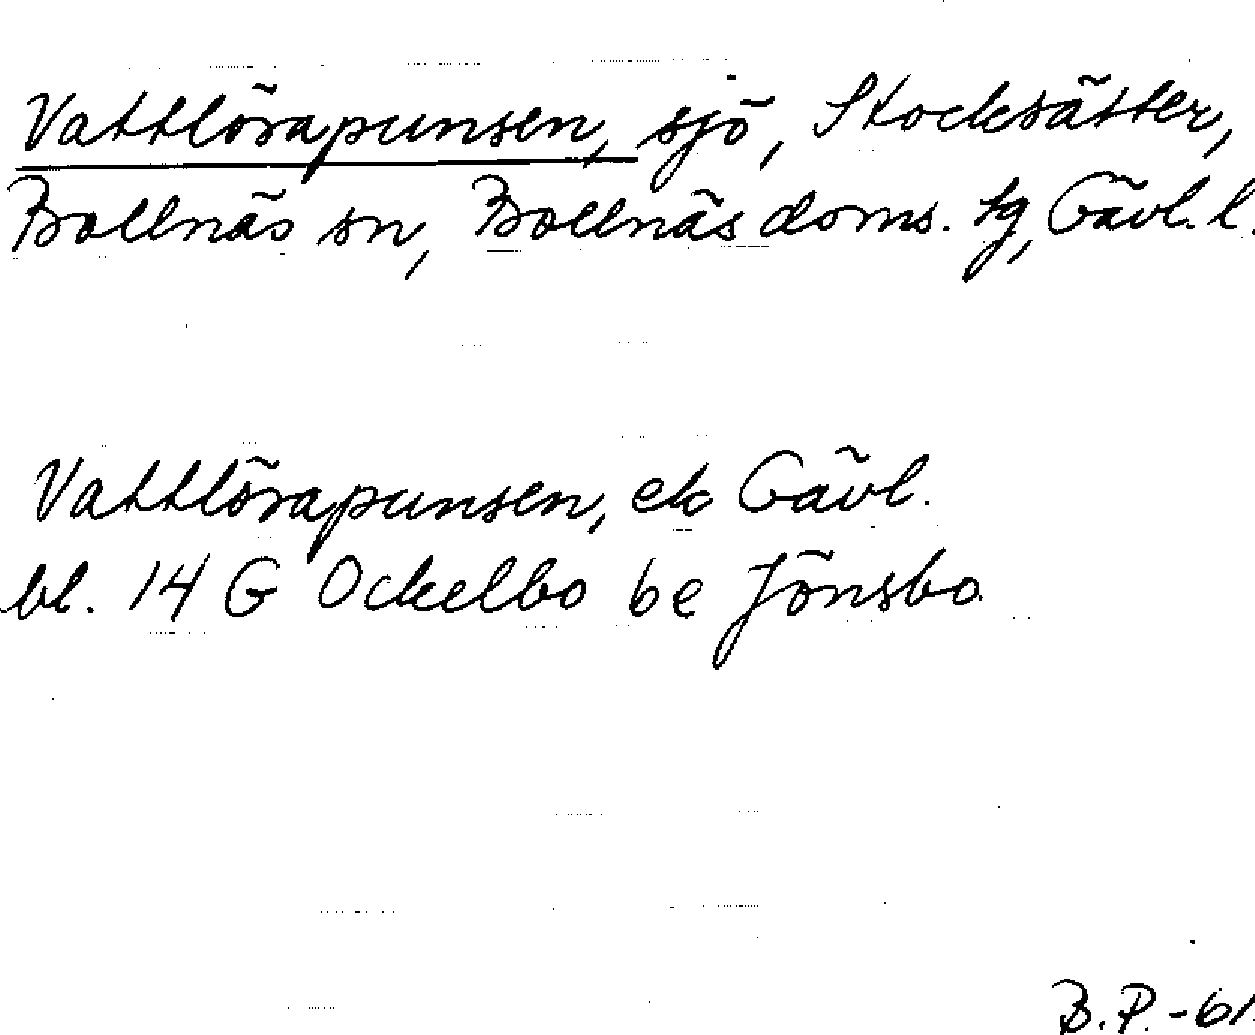 Vattlörapunsen, sjö, Stocksätter,
Bollnäs sn, Bollnäs doms. tg, Gävl. l.
Vattlörapunsen, ek Gävl.
bl. 14 G Ockelbo be Jönsbo
B.P.-61.